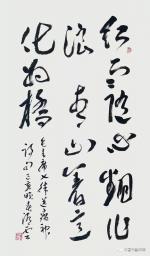 红雨随心翻作
浪青山着意
化为橋
毛主席七律送瘟神
诗句